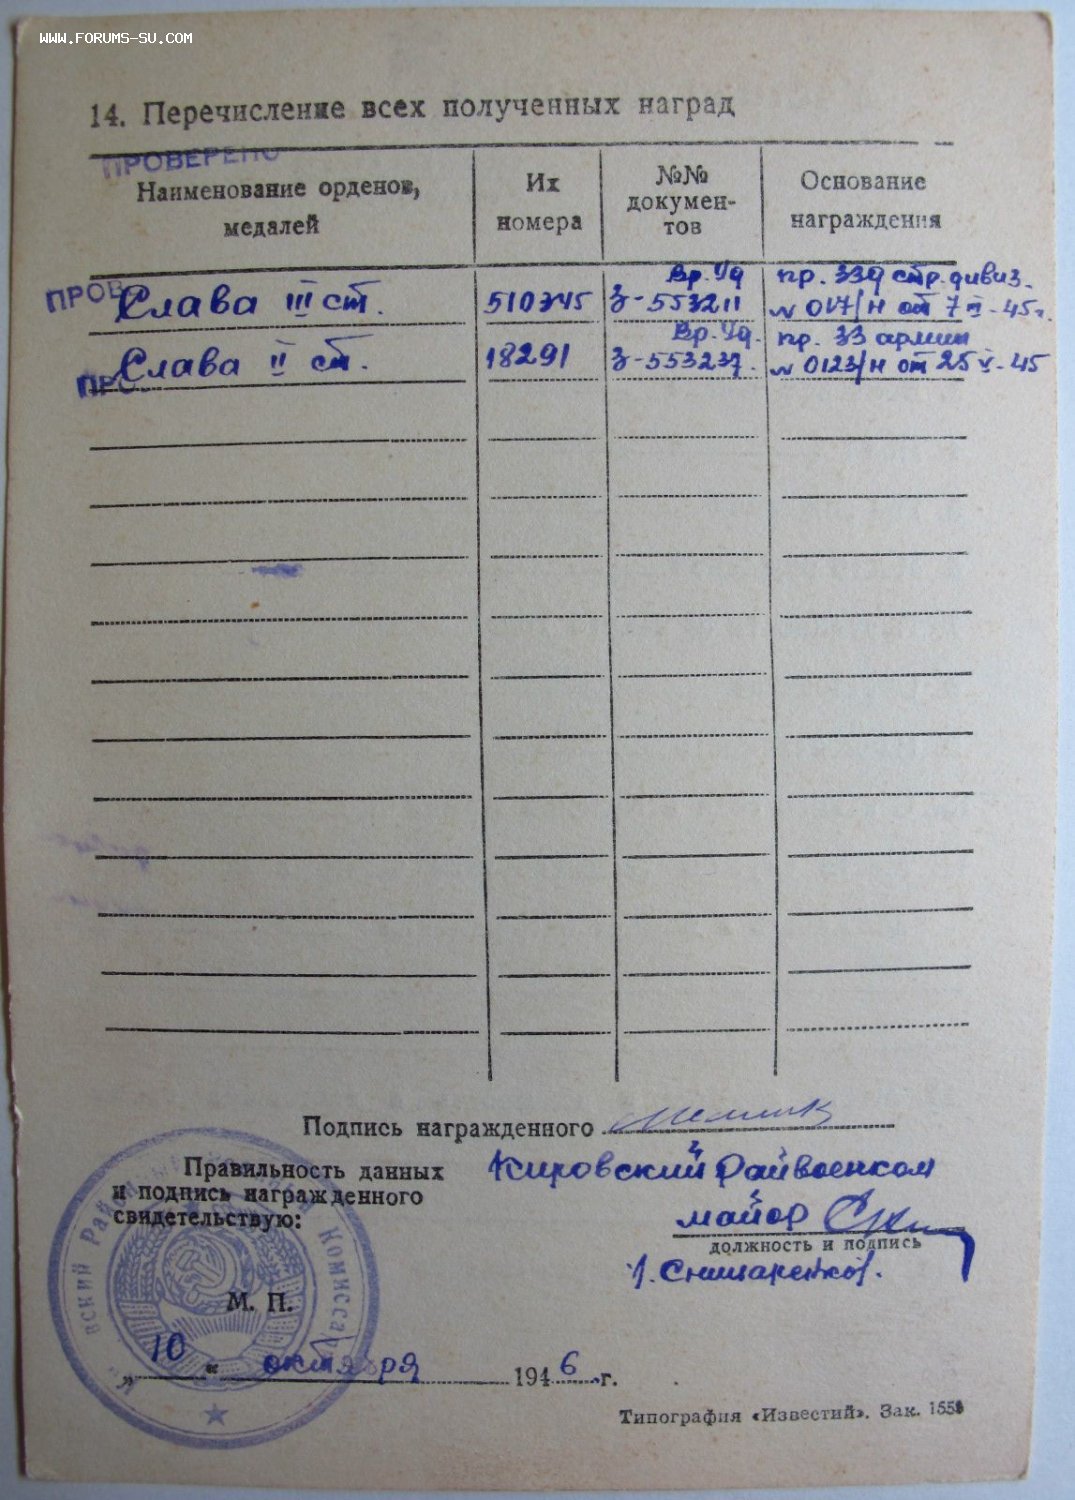 WWW.FORUMS-SU.COM
14. Перечисление всех полученных наград
ПРОВЕРЕНО
Наименование орденов, медалей
Их номера
№№ докумен-
тов
Основание награждения
ПРОВ
Слава III ст.
510745
Вр. Уд
З-553211
пр. 339 стр. дивиз.
№ 017/н от 7 II-45г.
ПРО
Слава II ст.
18291
Вр. Уд.
З-553237.
пр. 33 армии
№ 0123/н от 25 V-45
Подпись награжденного
Правильность данных
и подпись награжденного
свидетельствую:
Кировский Райвоенком
майор
должность и подпись
М. П.
„ 10 “ октября 1946 г.
Типография «Известий». Зак. 1558